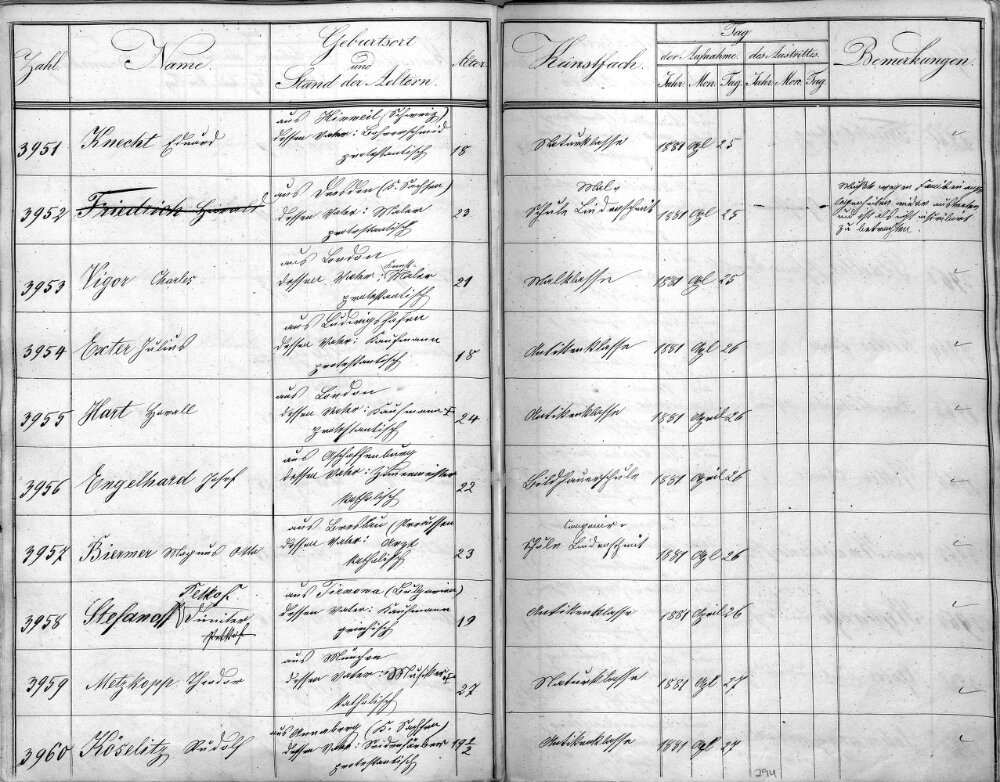 Zahl.
Name.
Geburtsort
und
Stand der Aeltern.
Alter
Kunstfach.
Tag
der Aufnahme.
des Austrittes
Jahr
Mon.
Tag
Jahr
Mon.
Tag
Bemerkungen.
3951
Knecht Eduard
aus Hinweil (Schweiz)
dessen Vater:
protestantisch
18
Naturklasse
1881 Apl 25
3952
Friedrich Harald
aus Dresden (K. Sachsen)
dessen Vater: Maler
protestantisch
23
Mal-
Schule Lindenschmit
1881 Apl 25
- - -
Mußte wegen Familienange
legenheiten wieder austreten
und ist als nicht
zu betrachten
3953
Vigor Charles
aus London
dessen Vater: Kunst-Maler
protestantisch
21
Malklasse
1881 Apl 25
3954
Exter Julius
aus Ludwigshafen
dessen Vater: Kaufmann
protestantisch
18
Antikenklasse
1881 Apl 26
3955
Hart
aus London
dessen Vater: Kaufmann †
protestantisch
24
Antikenklasse
1881 April 26
3956
Engelhard Josef
aus Aschaffenburg
dessen Vater: Zimmermeister
katholisch
22
Bildhauerschule
1881 April 26
3957
Biermer Magnus Otto
aus Breslau (Preussen
dessen Vater: Arzt
katholisch
23
Componir-
schule Lindenschmit
1881 Apl 26
3958
Petkof.
Stefanoff Dimiter
Petkof
aus Tirnova (Bulgarien)
dessen Vater: Kaufmann
griechisch
19
Antikenklasse
1881 April 26
3959
Metzkopp Theodor
aus München
dessen Vater: Musiker †
katholisch
27
Naturklasse
1881 Apl 27
3960
Köselitz Rudolf
aus Annaberg (K. Sachsen)
dessen Vater: Seidenfärber
protestantisch
19 1/2
Antikenklasse
1881 Apl 27
294